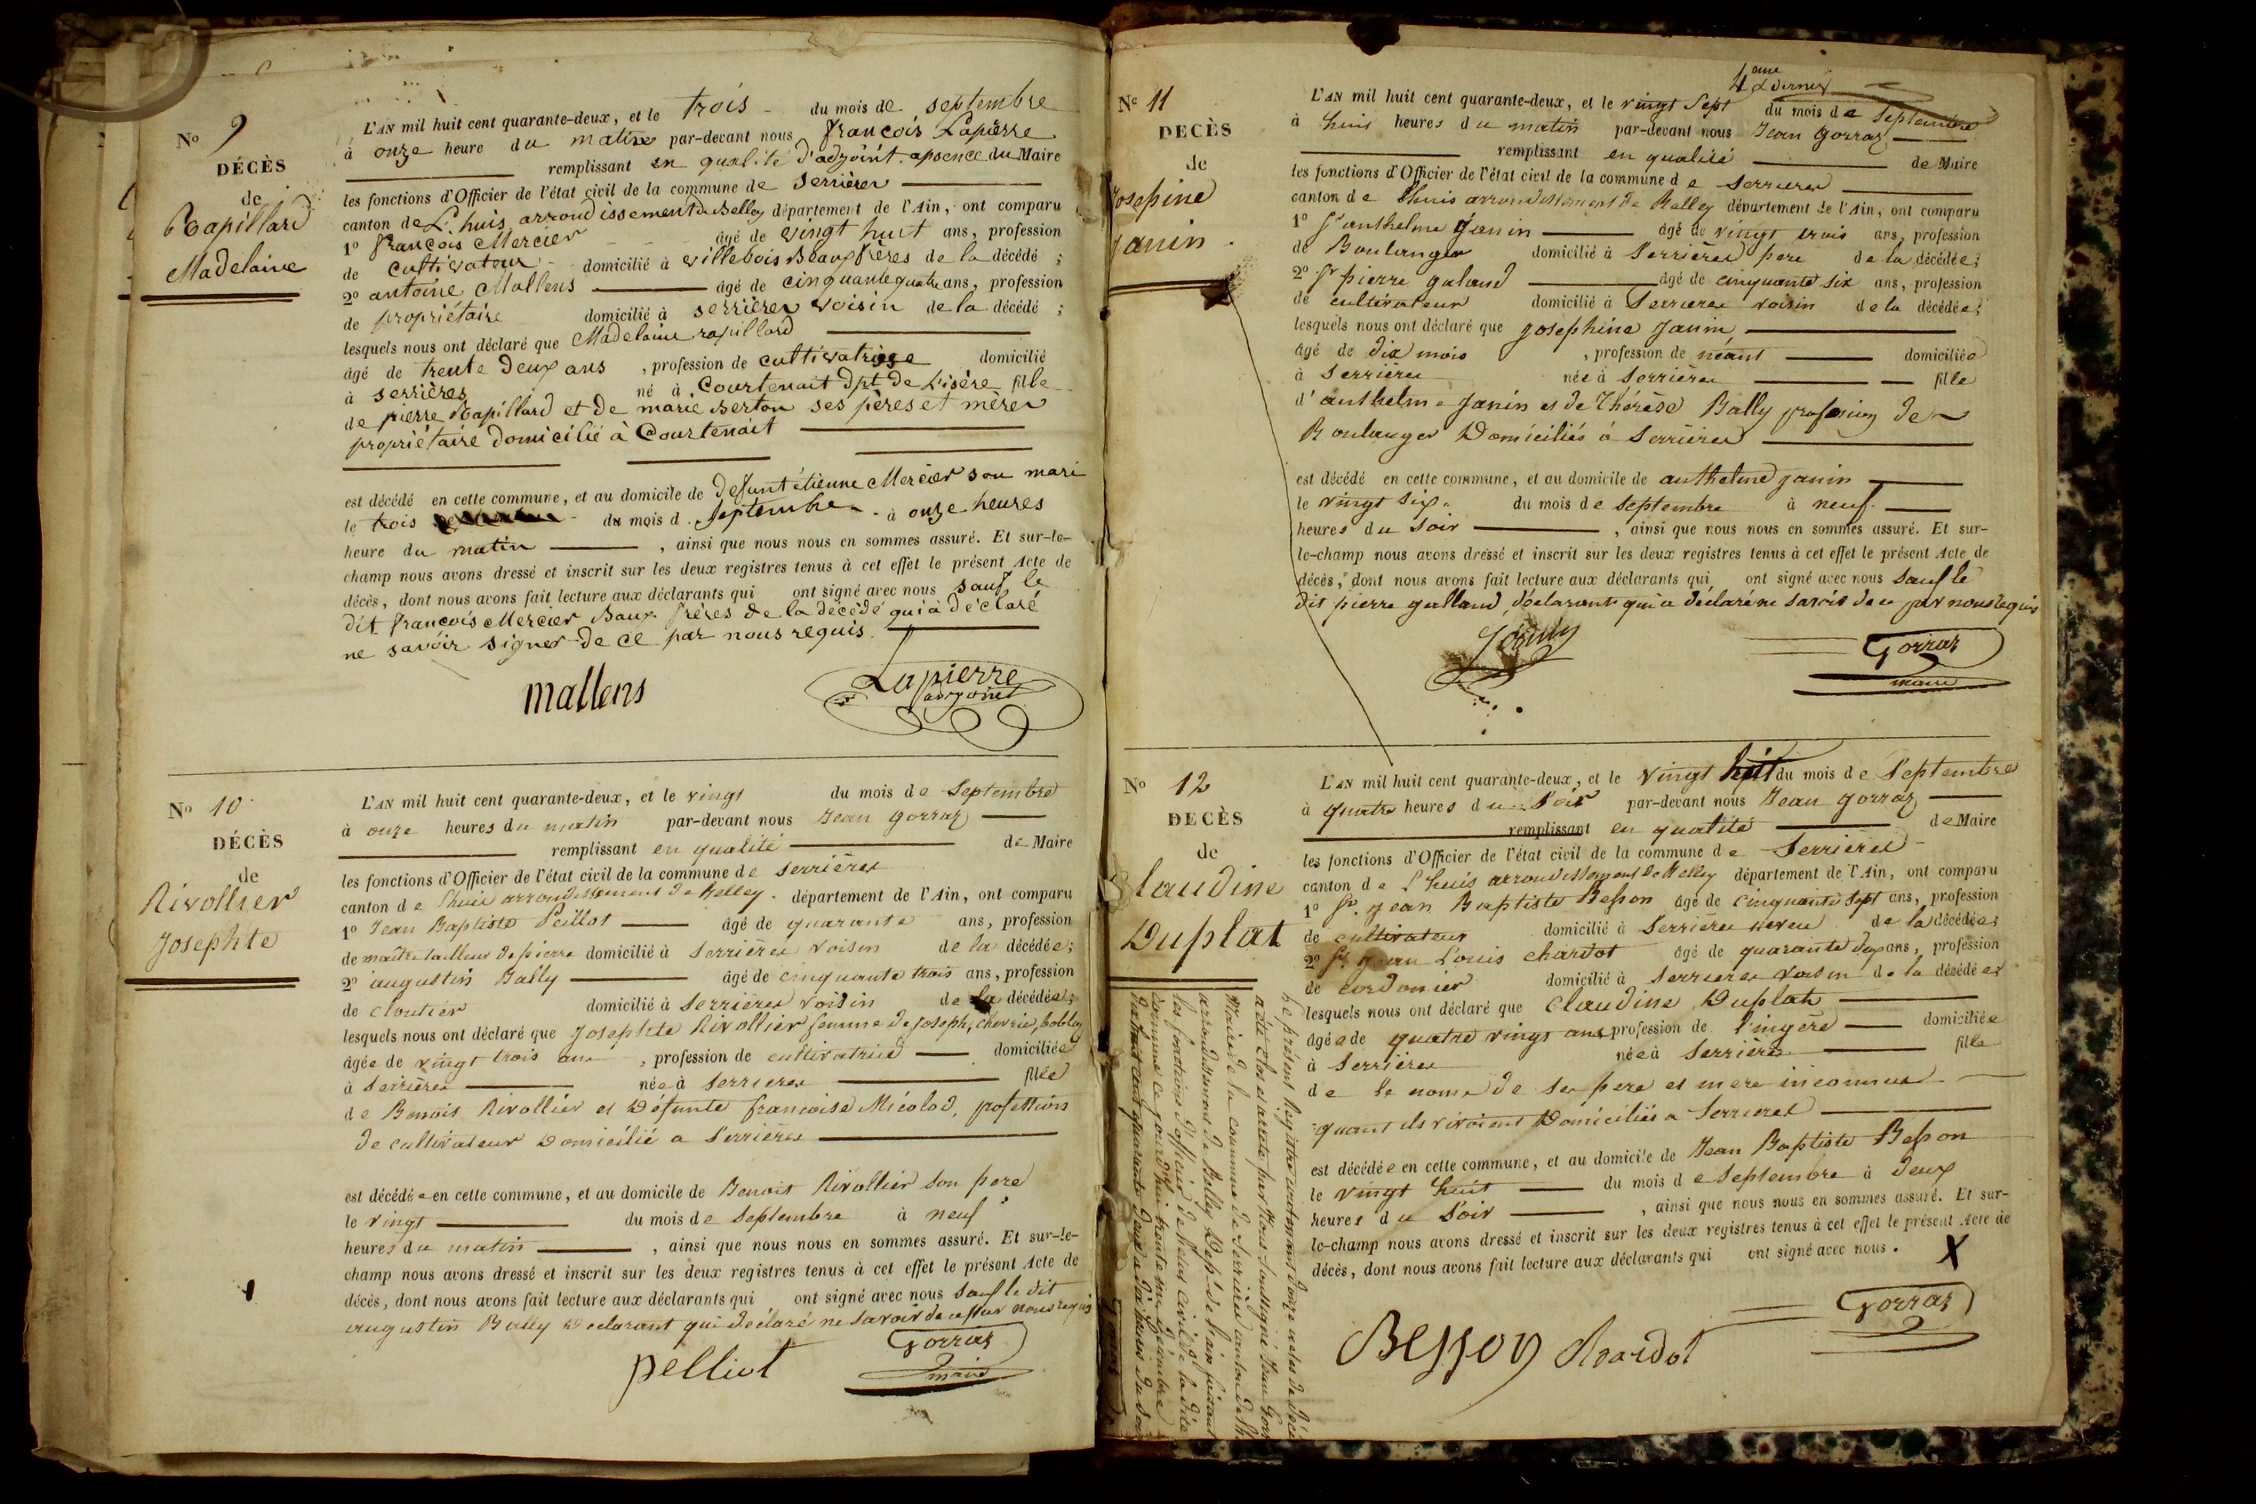 N° 9
DÉCÈS
de
Rapillard
Madelaine
L'AN mil huit cent quarante-deux, et le trois du mois de septembre
à onze heure du matin par-devant nous françois Lapierre
remplissant en qualité d'adjoint absence du Maire
les fonctions d'Officier de l'état civil de la commune de serrières
canton de L'huis arrondissement du Belley département de l'Ain, ont comparu
1° françois Mercier âgé de vingt huit ans, profession
de cultivateur domicilié à villebois Beaux frères de la décédé ;
2° antoine Mallens âgé de cinquante quatre ans, profession
de propriétaire domicilié à serrières voisin de la décédé ;
lesquels nous ont déclaré que Madelaine rapillard
âgé de trente deux ans , profession de cultivatrice domicilié
à serrières né à Courtenait dpt de L'isère fille
de pierre Rapillard et de marie Berton ses pères et mères
propriétaire domicilié à Courtenait
est décédé en cette commune, et au domicile de defunt étienne Mercier son mari
le trois du mois d. septembre à onze heures
heure du matin , ainsi que nous nous en sommes assuré. Et sur-le-
champ nous avons dressé et inscrit sur les deux registres tenus à cet effet le présent Acte de
décès, dont nous avons fait lecture aux déclarants qui ont signé avec nous sauf le
dit françois Mercier Baux frères de la décédé qui a déclaré
ne savoir signer de ce par nous requis.
mallens
Lapierre
adjoint
N° 10
DÉCÈS
de
Rivollier
Josephte
L'AN mil huit cent quarante-deux, et le vingt du mois de Septembre
à onze heures du matin par-devant nous Jean Gorraz
remplissant en qualité de Maire
les fonctions d'Officier de l'état civil de la commune de serrières
canton de Lhuis arrondissement de Belley. département de l'Ain, ont comparu
1° Jean Baptiste Pelliot âgé de quarante ans, profession
de maitre tailleur de pierre domicilié à serrières voisin de la décédée;
2° augustin Bally âgé de cinquante trois ans, profession
de cloutier domicilié à serrières voisin de la décédée;
lesquels nous ont déclaré que Josephte Rivollier femme de joseph,
âgée de vingt trois ans , profession de cultivatrice domiciliée
à Serrières née à Serrieres fille
de Benoit Rivollier et Défunte francoise Micolod, profession
de cultivateur Domicilié a Serrières
est décédée en cette commune, et au domicile de Benoit Rivollier son pere
le vingt du mois de Septembre à neuf
heures du matin , ainsi que nous nous en sommes assuré. Et sur-le-
champ nous avons dressé et inscrit sur les deux registres tenus à cet effet le présent Acte de
décès, dont nous avons fait lecture aux déclarants qui ont signé avec nous Sauf le dit
augustin Bally Declarant qui declaré ne savoir de ce par nous requis
pelliot
Gorraz
maire
N° 11
DECÈS
de
Josephine
Janin.
4eme & dernier
L'AN mil huit cent quarante-deux, et le vingt Sept du mois de Septembre
à huit heures du matin par-devant nous Jean Gorraz
remplissant en qualité de Maire
les fonctions d'Officier de l'état civil de la commune de serrieres
canton de Lhuis arrondissement de Belley département de l'Ain, ont comparu
1° Sr anthelme Janin âgé de vingt trois ans, profession
de Boulanger domicilié à Serrières pere de la décédée;
2° Sr pierre galand âgé de cinquante six ans, profession
de cultivateur domicilié à Serrieres voisin de la décédée;
lesquels nous ont déclaré que josephine Janin
âgé de dix mois , profession de néant domiciliée
à Serrieres née à Serrières fille
d'anthelme Janin et de Thérèse Bally profession de
Boulanger Domiciliés à Serrières
est décédé en cette commune, et au domicile de anthelme Janin
le vingt six. du mois de septembre à neuf
heures du Soir , ainsi que nous nous en sommes assuré. Et sur-
le-champ nous avons dressé et inscrit sur les deux registres tenus à cet effet le présent Acte de
décès, dont nous avons fait lecture aux déclarants qui ont signé avec nous Sauf le
dit pierre galland, déclarant qui a déclaré ne savoir de ce par nous requis
Gorraz
maire
N° 12
DECÈS
de
Claudine
Duplat
L'AN mil huit cent quarante-deux, et le vingt huit du mois de Septembre
à quatre heures du Soir par-devant nous Jean Gorraz
remplissant en qualité de Maire
les fonctions d'Officier de l'état civil de la commune de Serrieres
canton de Lhuis arrondissement de Belley département de l'Ain, ont comparu
1° Sr. Jean Baptiste Besson âgé de cinquante sept ans, profession
de cultivateur domicilié à Serrieres neveu de la décédée;
2° Sr Jean Louis chardot âgé de quarante deux ans, profession
de cordonier domicilié à Serrieres voisin de la décédée
lesquels nous ont déclaré que Claudine Duplat
âgée de quatre vingt ans profession de lingère domiciliée
à Serrières née à Serrières fille
de le noms de ses pere et mere inconnus
quant ils vivoient Domiciliés a Serrieres
est décédée en cette commune, et au domicile de Jean Baptiste Besson
le vingt huit du mois de Septembre à deux
heures du Soir , ainsi que nous nous en sommes assuré. Et sur-
le-champ nous avons dressé et inscrit sur les deux registres tenus à cet effet le présent Acte de
décès, dont nous avons fait lecture aux déclarants qui ont signé avec nous.
X
Besson Chardot
Gorraz
Le présent Registre contenant Douze actes de décé
a été clos et arrêté par Nous Soussigné Jean Gorr
Maire de la commune de Serrières canton de Lh.
arrondissement de Belley Dept. de l'ain faisant
les fonctions d'officier de l'etat civil de la dite
commune ce jourd'hui trente un
mil huit cent quarante deux a six heures du Soir